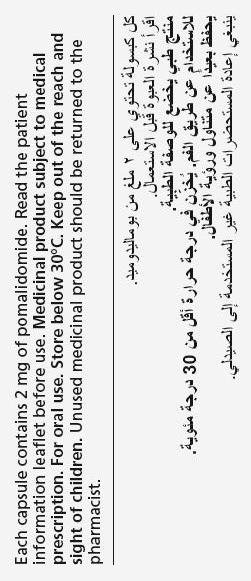 Each capsule contains 2 mg of pomalidomide. Read the patient
information leaflet before use. Medicinal product subject to medical
prescription. For oral use. Store below 30°C. Keep out of the reach and
sight of children. Unused medicinal product should be returned to the
pharmacist.
كل كبسولة تحتوي على ٢ ملغ من بوماليدوميد.
اقرأ نشرة العبوة قبل الاستعمال.
منتج طبي يخضع للوصفة الطبية.
للاستخدام عن طريق الفم. يخزن في درجة حرارة أقل من 30 درجة مئوية.
يحفظ بعيداً عن متناول ورؤية الأطفال.
ينبغي إعادة المستحضرات الطبية غير المستخدمة إلى الصيدلي.